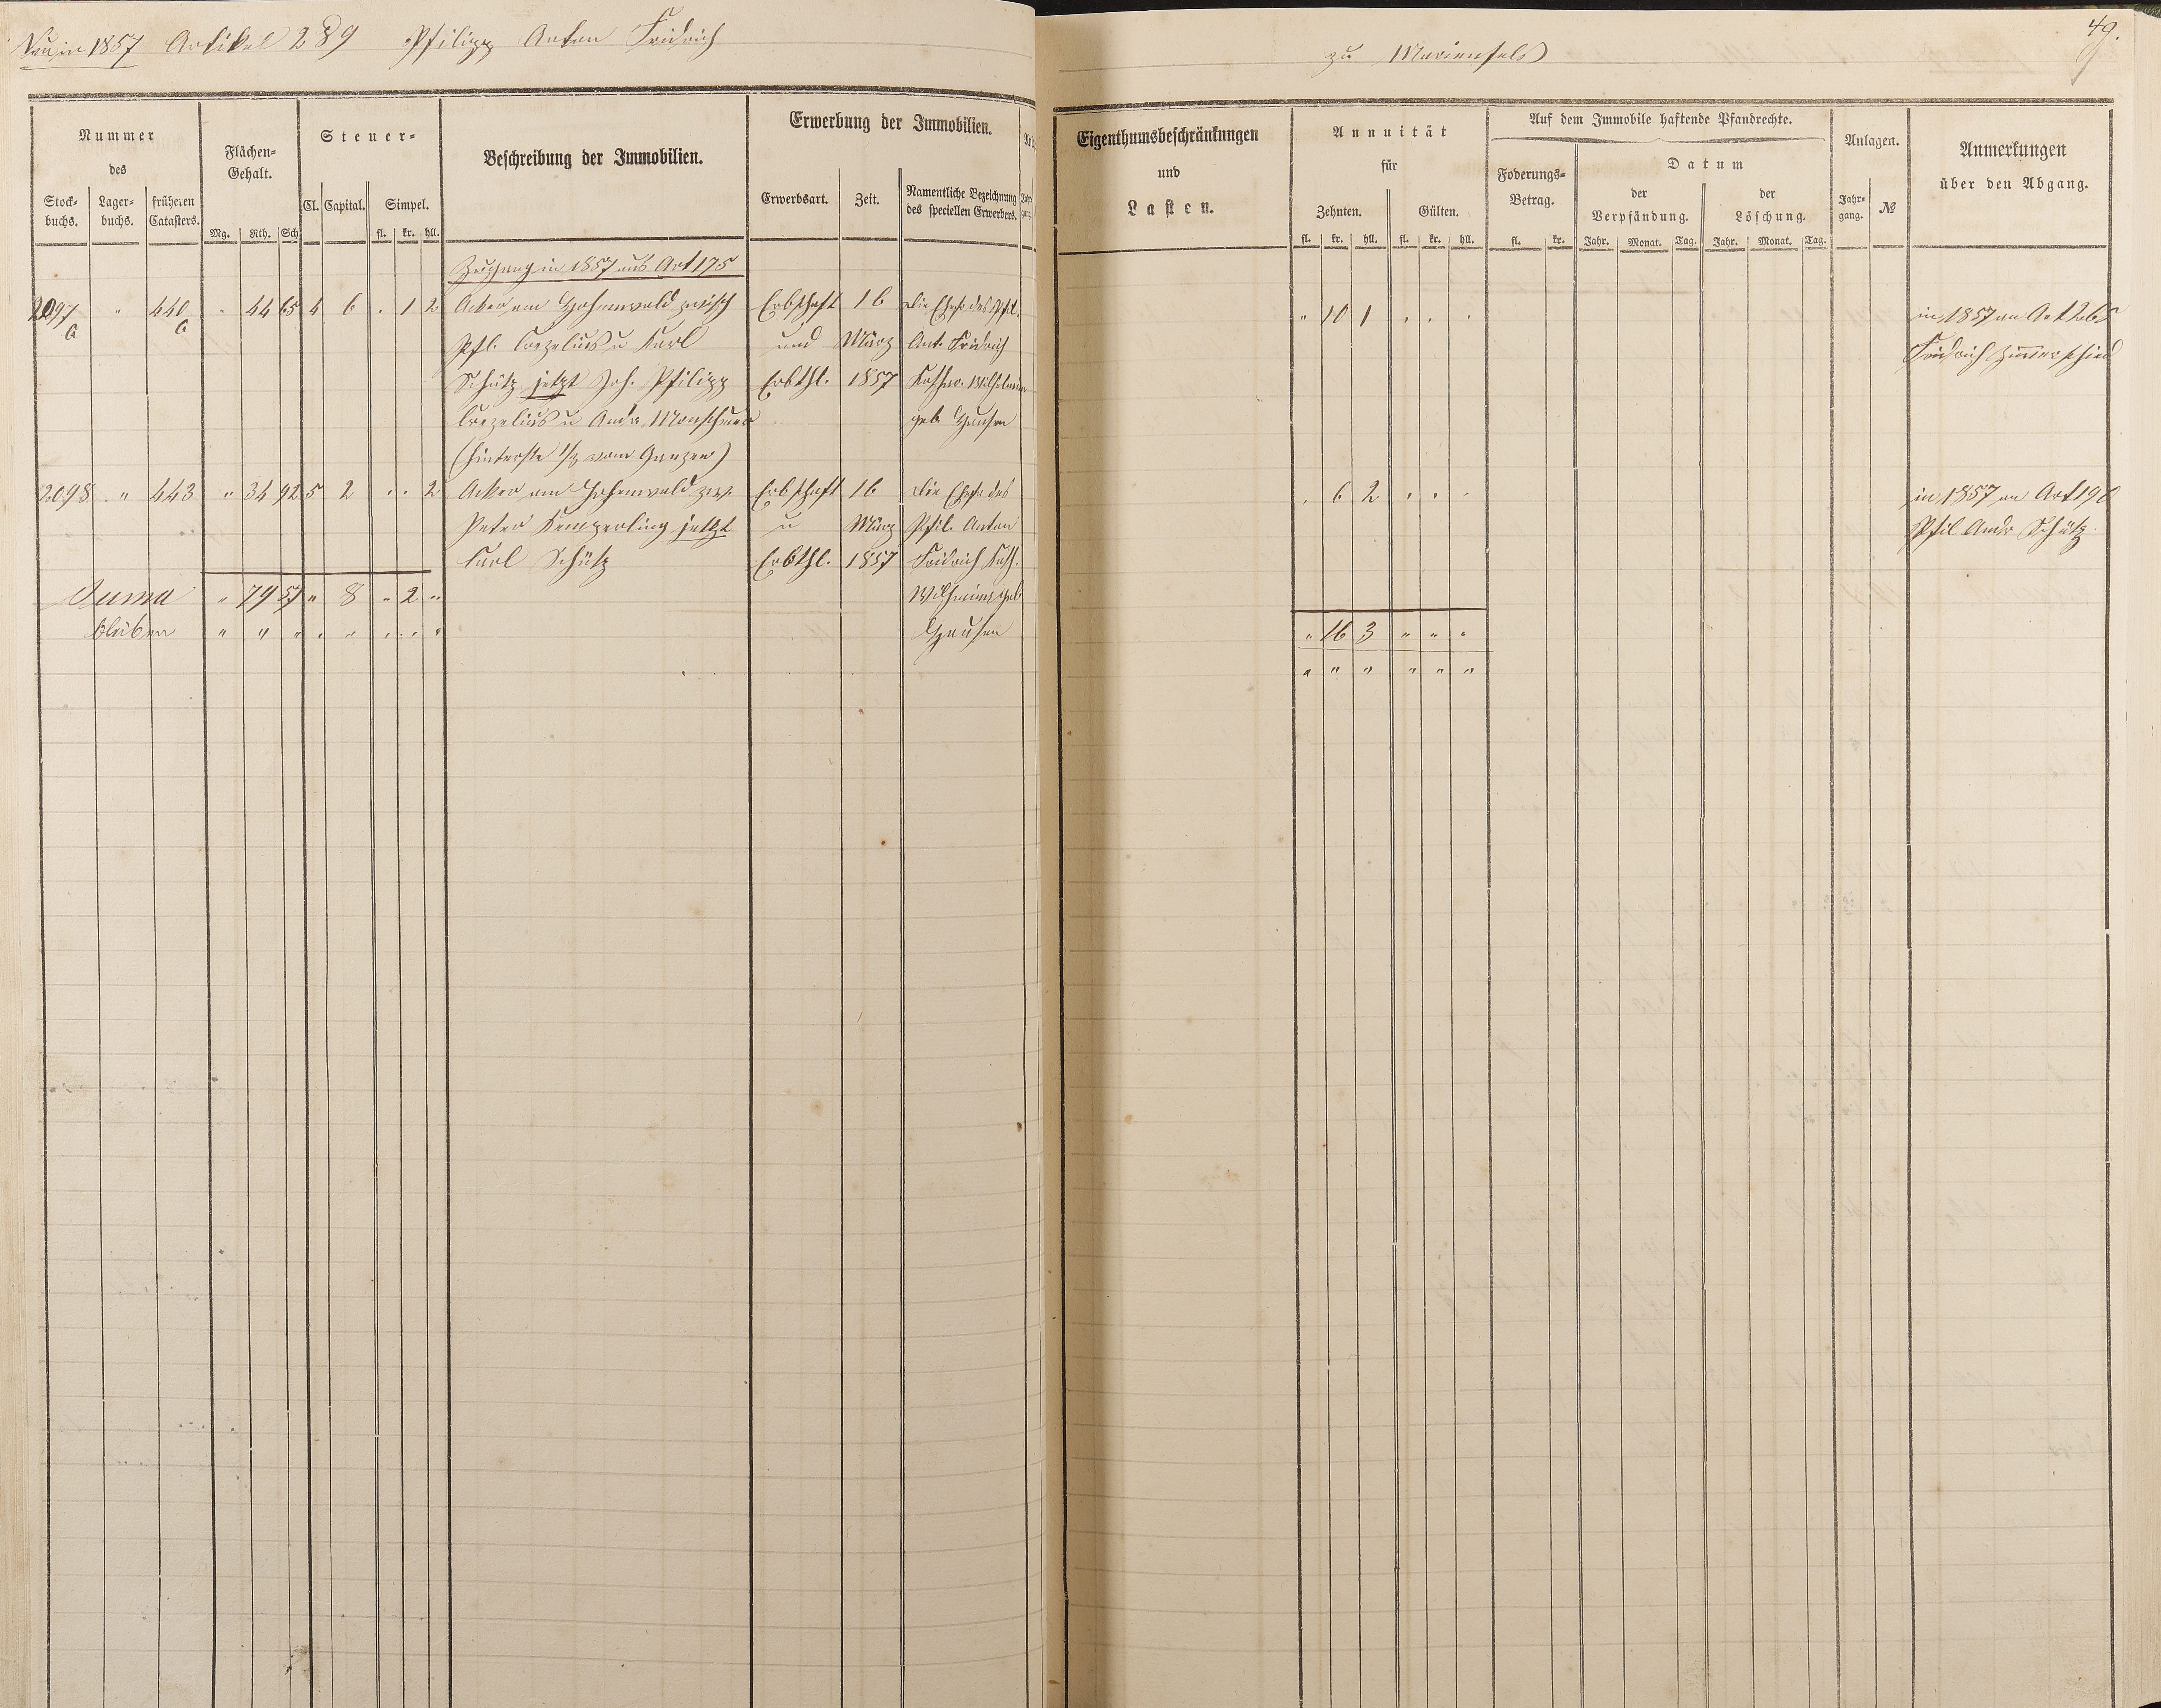 Neu in 1857 Artikel 289 Philipp Anton Fridrich
zu Marienfels
49.
Nummer
des
Stock-
buchs.
Lager-
buchs.
früheren
Catasters.
Flächen-
Gehalt.
Mg. Rth. Sch
Steuer-
Cl. Capital. Simpel.
fl. kr. hll.
Beschreibung der Immobilien.
Erwerbung der Immobilien.
Erwerbsart. Zeit. Namentliche Bezeichnung
des speciellen Erwerbers.
Eigenthumsbeschränkungen
und
Lasten.
Annuität
für
Zehnten. Gülten.
fl. kr. hll. fl. kr. hll.
Auf dem Immobile haftende Pfandrechte.
Foderungs-
Betrag.
fl. kr.
Datum
der
Verpfändung.
der
Löschung.
Jahr. Monat. Tag. Jahr. Monat. Tag.
Anlagen.
Jahr-
gang. №
Anmerkungen
über den Abgang.
Zugang in 1857 aus Art 175
2097 " 440 " 44 65 4 6 . 1 2 Acker am Hohenwald zwisch Erbschaft 16 die Ehefr des Phil. " 10 1 . . . in 1857 an Art 265
a a Phl. Corzelius u Karl und März Ant. Fridrich Fridrich Zimerschied
Schütz jetzt Joh. Philipp Erbthl. 1857 Kathar. Wilhelmine
Corzelius u Andr. Monschauer geb Hausen
(hinterste 1/2 vom Ganzen)
2098 " 443 " 34 92 5 2 . . 2 Acker am Hohenwald zw. Erbschaft 16 die Ehefr des . 6 2 . . . in 1857 an Art 198
Peter Kemperling jetzt u März Phil. Anton Phil Andr Schütz.
Karl Schütz Erbthl. 1857 Fridrich Kath.
Suma " 79 57 " 8 " 2 " Wilhmine geb
bleiben " " " " " " " " Hausen " 16 3 " " "
" " " " " "